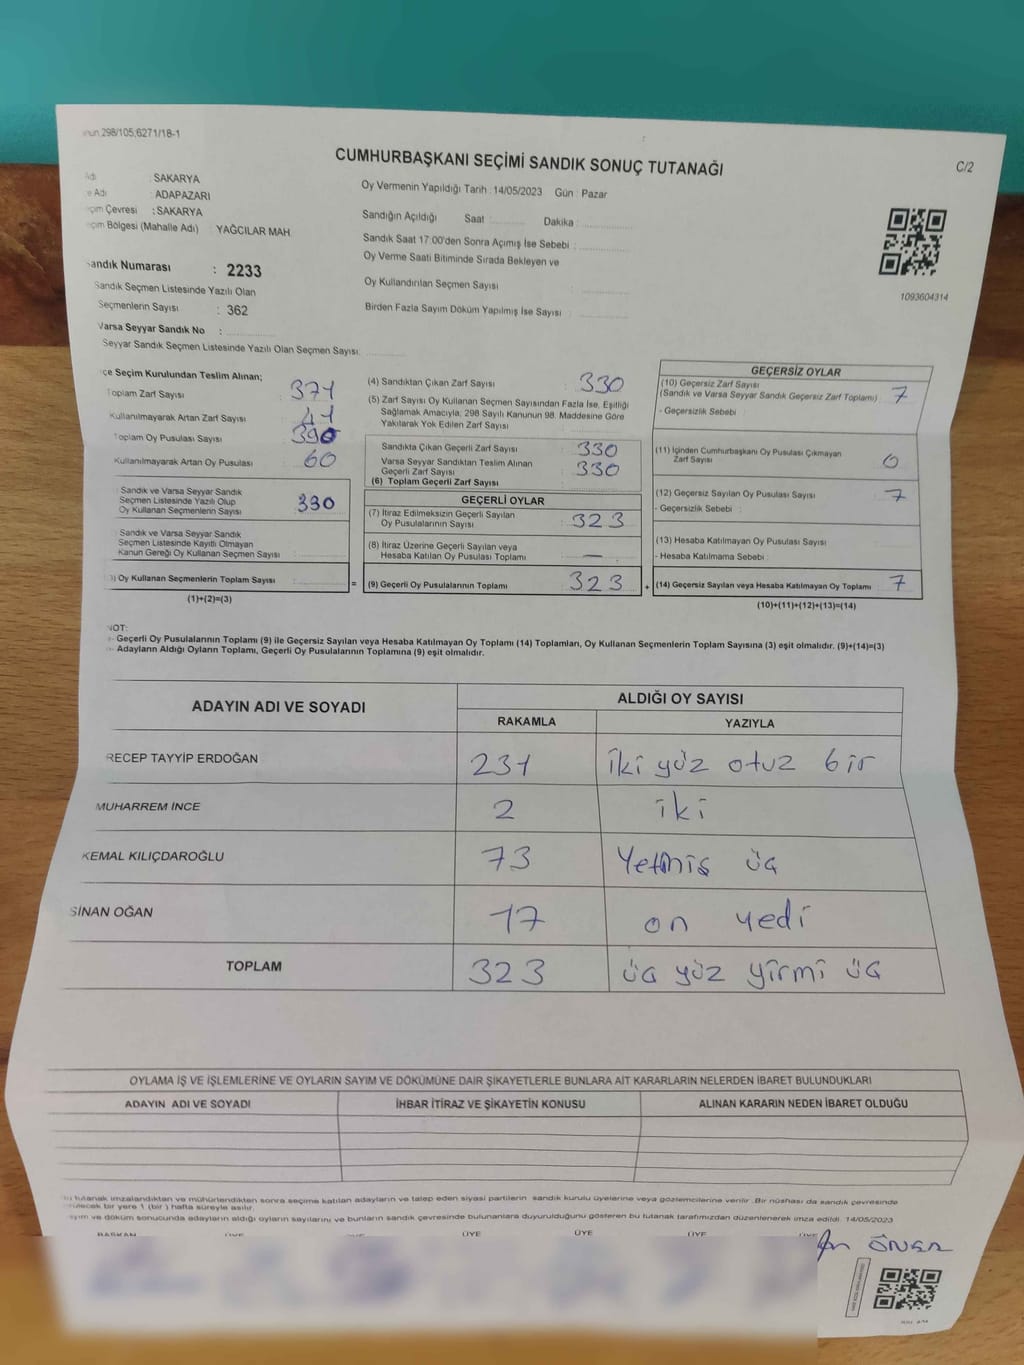 298/105;6271/18-1
CUMHURBAŞKANI SEÇİMİ SANDIK SONUÇ TUTANAĞI
C/2
: SAKARYA
Adı : ADAPAZARI
Çevresi : SAKARYA
Bölgesi (Mahalle Adı) : YAĞCILAR MAH.
Sandık Numarası : 2233
Sandık Seçmen Listesinde Yazılı Olan
Seçmenlerin Sayısı : 362
Varsa Seyyar Sandık No :
Seyyar Sandık Seçmen Listesinde Yazılı Olan Seçmen Sayısı:
Oy Vermenin Yapıldığı Tarih : 14/05/2023 Gün : Pazar
Sandığın Açıldığı Saat : Dakika :
Sandık Saat 17:00'den Sonra Açımış İse Sebebi :
Oy Verme Saati Bitiminde Sırada Bekleyen ve
Oy Kullandırılan Seçmen Sayısı :
Birden Fazla Sayım Döküm Yapılmış İse Sayısı :
1093604314
Seçim Kurulundan Teslim Alınan;
Toplam Zarf Sayısı : 371
Kullanılmayarak Artan Zarf Sayısı : 41
Toplam Oy Pusulası Sayısı : 390
Kullanılmayarak Artan Oy Pusulası : 60
Sandık ve Varsa Seyyar Sandık
Seçmen Listesinde Yazılı Olup
Oy Kullanan Seçmenlerin Sayısı : 330
Sandık ve Varsa Seyyar Sandık
Seçmen Listesinde Kayıtlı Olmayan
Kanun Gereği Oy Kullanan Seçmen Sayısı :
Oy Kullanan Seçmenlerin Toplam Sayısı : =
(1)+(2)=(3)
(4) Sandıktan Çıkan Zarf Sayısı : 330
(5) Zarf Sayısı Oy Kullanan Seçmen Sayısından Fazla İse, Eşitliği
Sağlamak Amacıyla, 298 Sayılı Kanunun 98. Maddesine Göre
Yakılarak Yok Edilen Zarf Sayısı :
Sandıkta Çıkan Geçerli Zarf Sayısı : 330
Varsa Seyyar Sandıktan Teslim Alınan
Geçerli Zarf Sayısı : 330
(6) Toplam Geçerli Zarf Sayısı :
GEÇERLİ OYLAR
(7) İtiraz Edilmeksizin Geçerli Sayılan
Oy Pusulalarının Sayısı : 323
(8) İtiraz Üzerine Geçerli Sayılan veya
Hesaba Katılan Oy Pusulası Toplamı : —
(9) Geçerli Oy Pusulalarının Toplamı : 323 +
GEÇERSİZ OYLAR
(10) Geçersiz Zarf Sayısı
(Sandık ve Varsa Seyyar Sandık Geçersiz Zarf Toplamı) : 7
- Geçersizlik Sebebi :
(11) İçinden Cumhurbaşkanı Oy Pusulası Çıkmayan
Zarf Sayısı : 0
(12) Geçersiz Sayılan Oy Pusulası Sayısı : 7
- Geçersizlik Sebebi :
(13) Hesaba Katılmayan Oy Pusulası Sayısı :
- Hesaba Katılmama Sebebi :
(14) Geçersiz Sayılan veya Hesaba Katılmayan Oy Toplamı : 7
(10)+(11)+(12)+(13)=(14)
NOT:
- Geçerli Oy Pusulalarının Toplamı (9) ile Geçersiz Sayılan veya Hesaba Katılmayan Oy Toplamı (14) Toplamları, Oy Kullanan Seçmenlerin Toplam Sayısına (3) eşit olmalıdır. (9)+(14)=(3)
- Adayların Aldığı Oyların Toplamı, Geçerli Oy Pusulalarının Toplamına (9) eşit olmalıdır.
ADAYIN ADI VE SOYADI ALDIĞI OY SAYISI
RAKAMLA YAZIYLA
RECEP TAYYİP ERDOĞAN 231 iki yüz otuz bir
MUHARREM İNCE 2 iki
KEMAL KILIÇDAROĞLU 73 Yetmiş üç
SİNAN OĞAN 17 on yedi
TOPLAM 323 üç yüz yirmi üç
OYLAMA İŞ VE İŞLEMLERİNE VE OYLARIN SAYIM VE DÖKÜMÜNE DAİR ŞİKAYETLERLE BUNLARA AİT KARARLARIN NELERDEN İBARET BULUNDUKLARI
ADAYIN ADI VE SOYADI İHBAR İTİRAZ VE ŞİKAYETİN KONUSU ALINAN KARARIN NEDEN İBARET OLDUĞU
tutanak imzalandıktan ve mühürlendikten sonra seçime katılan adayların ve talep eden siyasi partilerin sandık kurulu üyelerine veya gözlemcilerine verilir. Bir nüshası da sandık çevresinde
bir yere 1 (bir) hafta süreyle asılır.
ve döküm sonucunda adayların aldığı oyların sayılarını ve bunların sandık çevresinde bulunanlara duyurulduğunu gösteren bu tutanak tarafımızdan düzenlenerek imza edildi. 14/05/2023
BAŞKAN ÜYE ÜYE ÜYE ÜYE ÜYE ÜYE
ÖNER